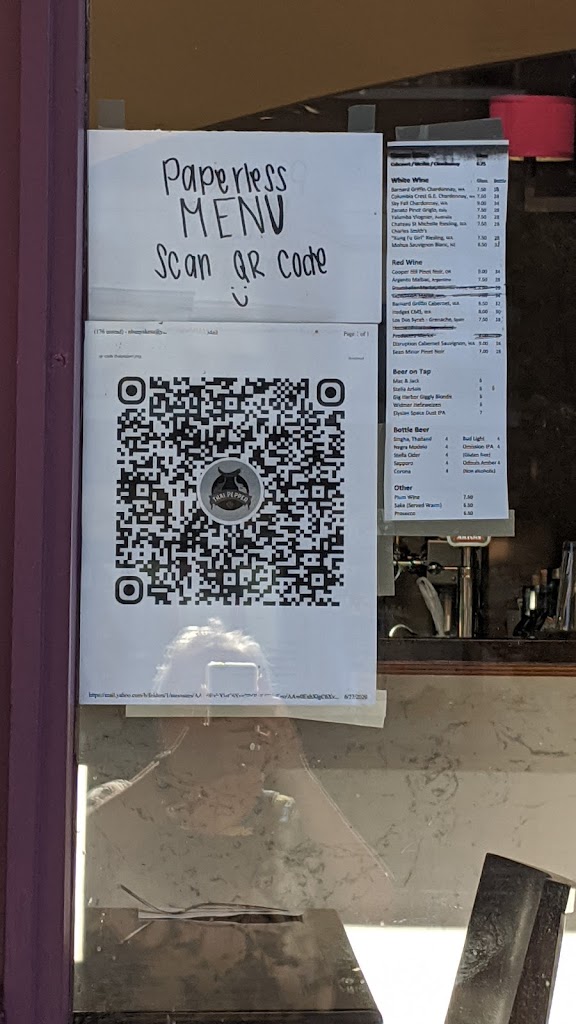 Paperless
MENU
Scan QR Code
Page 1 of 1
THAI PEPPER
6/27/2020
White Wine
Barnard Griffin Chardonnay, WA 7.50 28
Columbia Crest G.E. Chardonnay, WA 7.50 28
Sky Fall Chardonnay, WA 9.00 34
Zenato Pinot Grigio, Italy 7.50 28
Yalumba Viogner, Australia 7.50 28
Chateau St Michelle Riesling, WA 7.50 28
Charles Smith's
"Kung Fu Girl" Riesling, WA 7.50 28
Mohua Sauvignon Blanc, NZ 8.50 32
Red Wine
Cooper Hill Pinot Noir, OR 9.00 34
Argento Malbec, Argentina 7.50 28
Barnard Griffin Cabernet, WA 8.50 32
Hedges CMS, WA 8.00 30
Los Dos Syrah - Grenache, Spain 7.50 28
Disruption Cabernet Sauvignon, WA 9.00 34
Sean Minor Pinot Noir 7.00 28
Beer on Tap
Mac & Jack 6
Stella Artois 6
Gig Harbor Giggly Blonde 6
Widmer Hefeweizen 6
Elysian Space Dust IPA 7
Bottle Beer
Singha, Thailand 4 Bud Light 4
Negra Modelo 4 Omission IPA 4
Stella Cider 4 (Gluten free)
Sapporo 4 Odouls Amber 4
Corona 4 (Non alcoholic)
Other
Plum Wine 7.50
Sake (Served Warm) 6.50
Prosecco 6.50